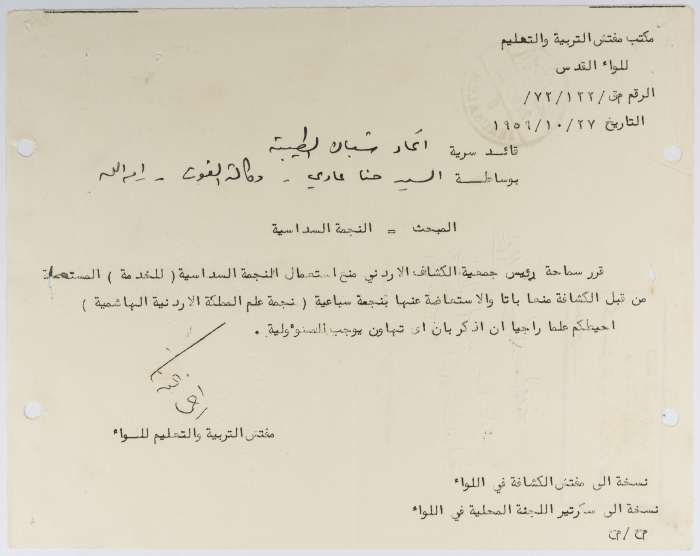 مكتب مفتش التربية والتعليم
للواء القدس
الرقم مق/١٢٢/٧٢/
التاريخ ٢٧/١٠/١٩٥٩
قائد سرية اتحاد شبان الطيبة
بوساطة السيد حنا عادي - وكالة الغوث - رام الله
المبحث = النجمة السداسية
قرر سماحة رئيس جمعية الكشاف الاردني منع استعمال النجمة السداسية ( للخدمة ) المستعملة
من قبل الكشافة منعا باتا والاستعاضة عنها بنجمة سباعية ( نجمة علم المملكة الاردنية الهاشمية )
احيطكم علما راجيا ان اذكر بان اى تهاون يوجب المسئوولية .
مفتش التربية والتعليم للواء
نسخة الى مفتش الكشافة في اللواء
نسخة الى سكرتير اللجنة المحلية في اللواء